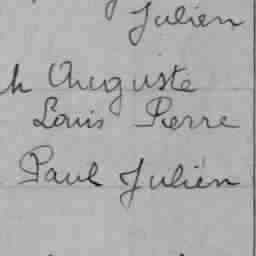 Julien
h Auguste
Louis Pierre
Paul Julien